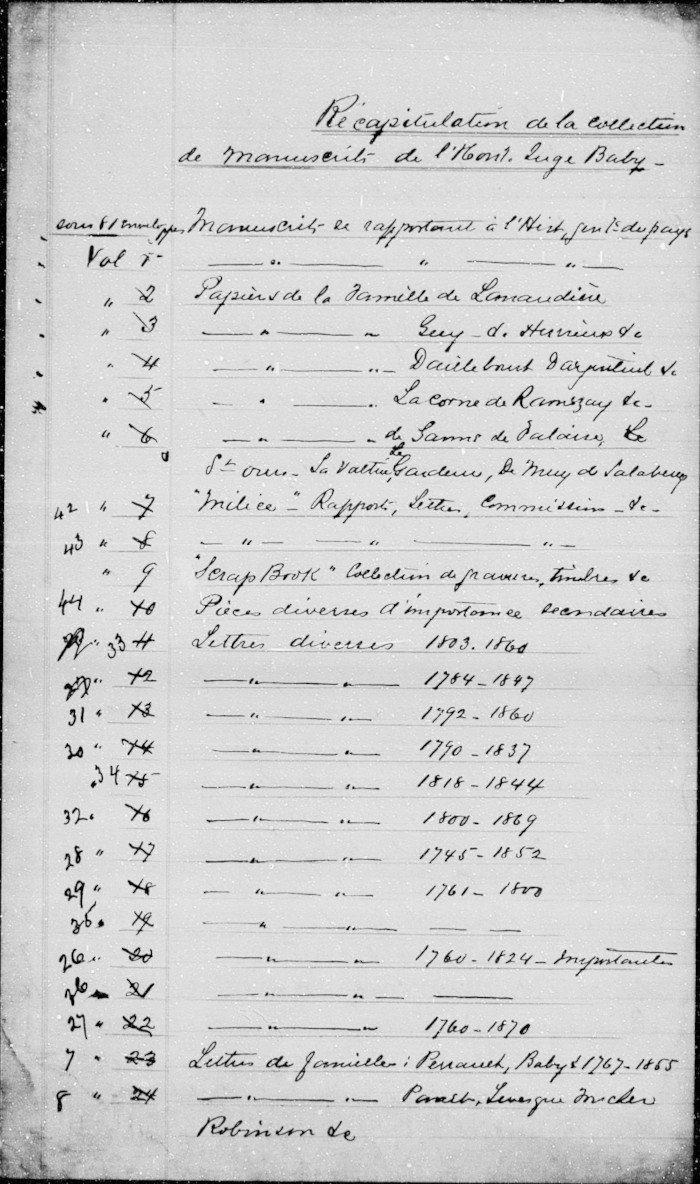 Récapitulation de la collection
de Manuscrits de l'Hon. Juge Baby -
sous 81 enveloppes Manuscrits se rapportant à l'Hist. gén. du pays
Vol 1 — " — " — " —
" 2 Papiers de la Famille de Lanaudière
" 3 — " — " Guy - de &c
" 4 — " — " — Daillebout Dargenteuil &c
" 5 — " — " Lacorne de Ramezay &c -
" 6 — " — " de Gannes de Falaise, Le
St Ours - La Valtrie, Gardeur, De Muy de Salaberry
42 " 7 "Milice" - Rapports, Lettres, Commissions - &c -
43 " 8 — " — — " — — " —
" 9 "Scrap Book" Collection de gravures, timbres &c
44 " 10 Pièces diverses d'importance secondaires
" 33 11 Lettres diverses 1803. 1860
" 12 — " — " — 1784 - 1847
31 " 13 — " — " — 1792 - 1860
30 " 14 — " — " — 1790 - 1837
34 15 — " — " — 1818 - 1844
32 " 16 — " — " — 1800 - 1869
28 " 17 — " — " — 1745 - 1852
29 " 18 — " — " — 1761 - 1800
25 " 19 — " — " — — —
26 " 20 — " — " — 1760 - 1824 - Importantes
36 21 — " — " — —
27 " 22 — " — " 1760 - 1870
7 " 23 Lettres de familles : Perrault, Baby & 1767 - 1855
8 " 24 — " — " — Panet, Levesque
Robinson &c